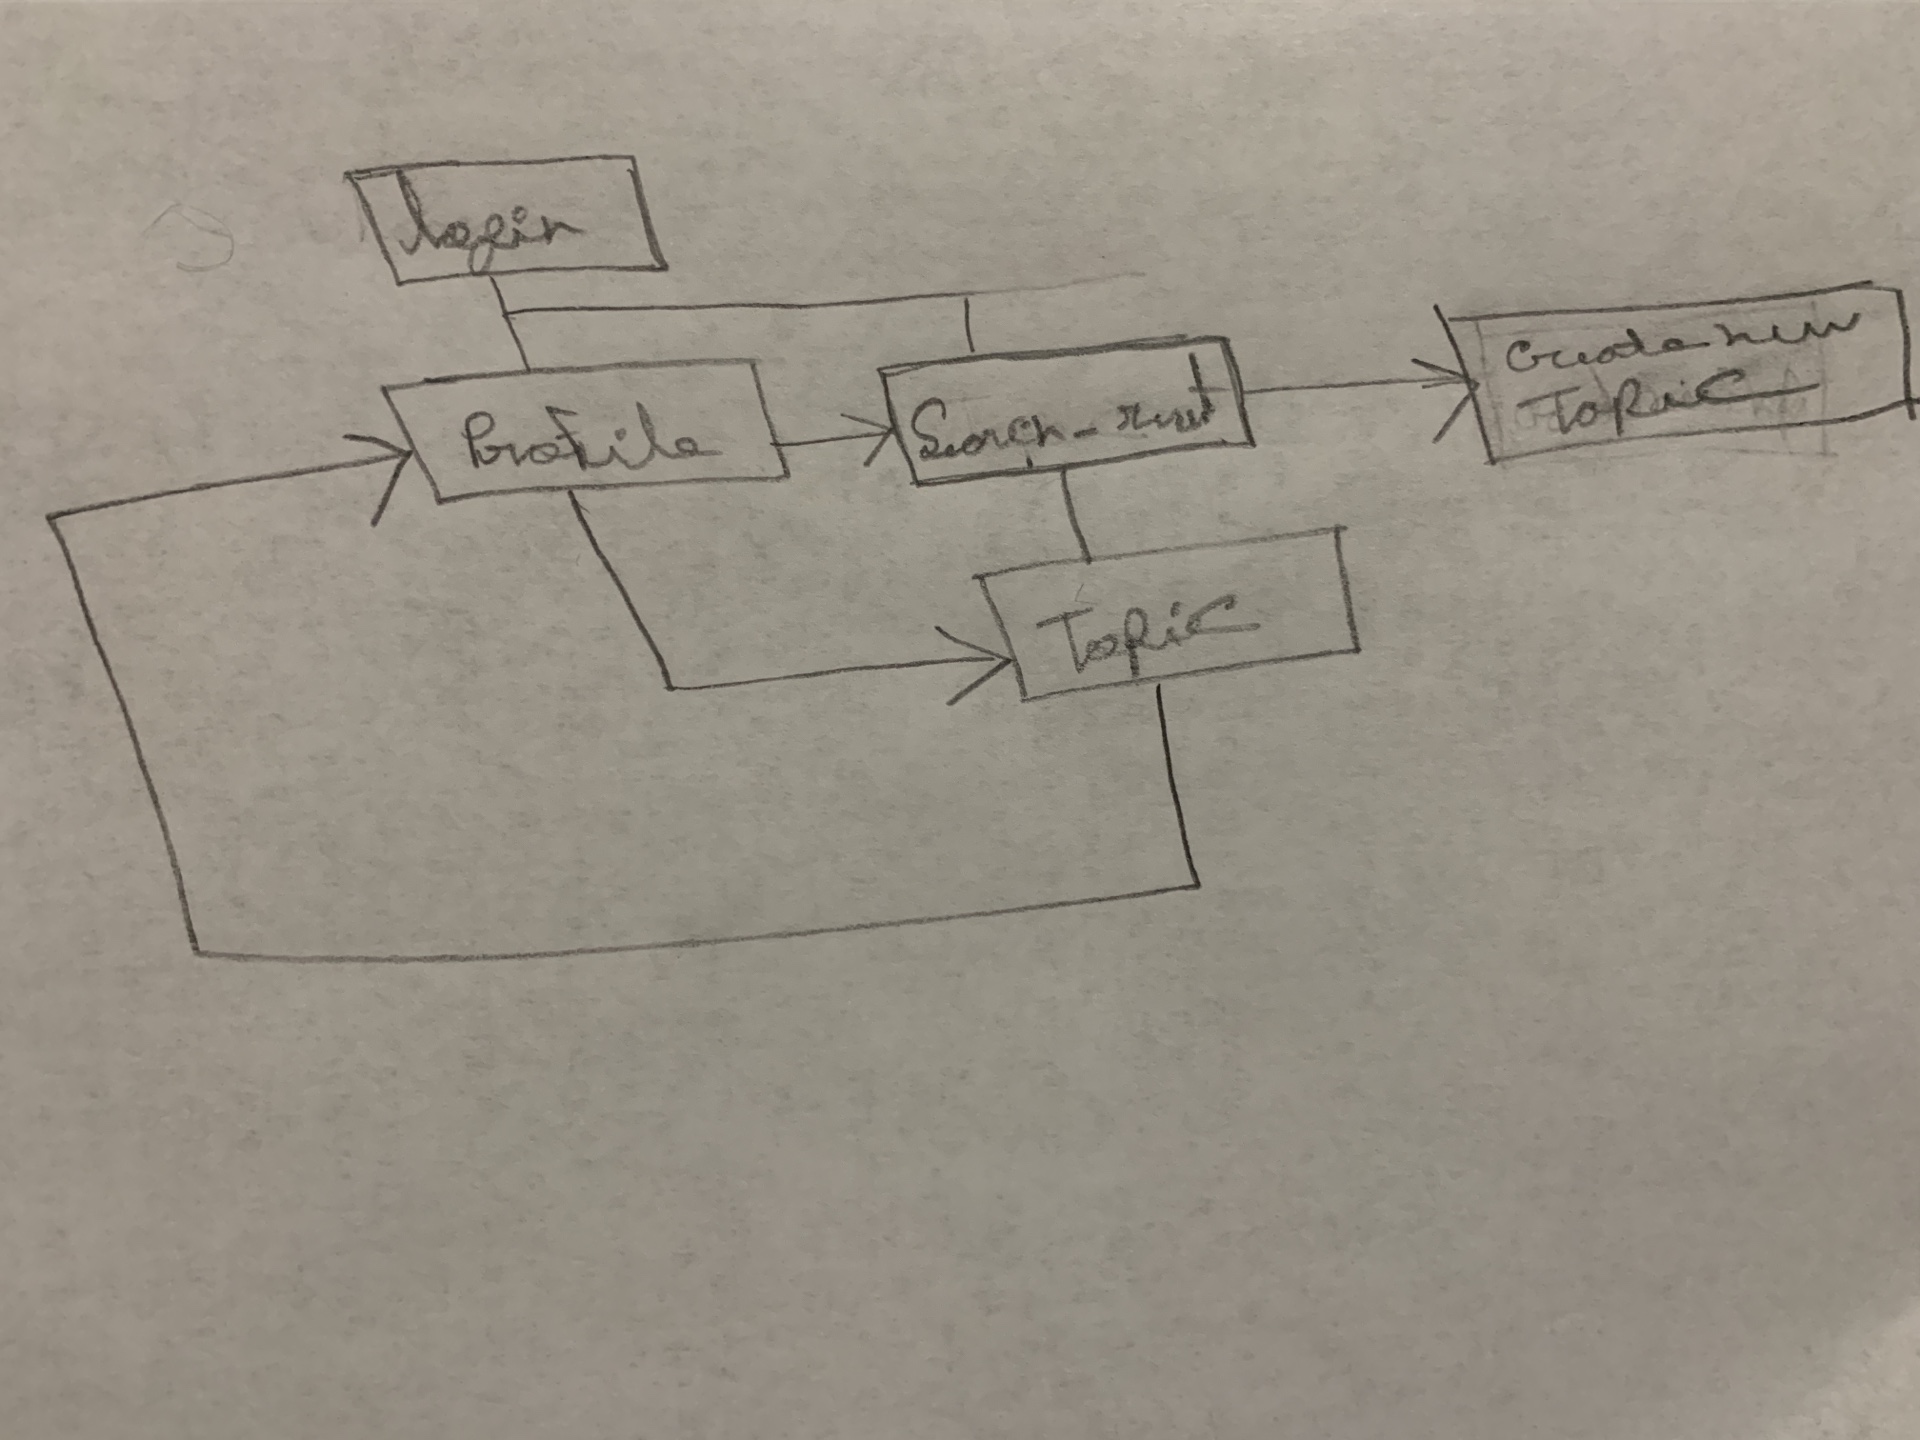 login
Profile
Search-
Create new
Topic
Topic